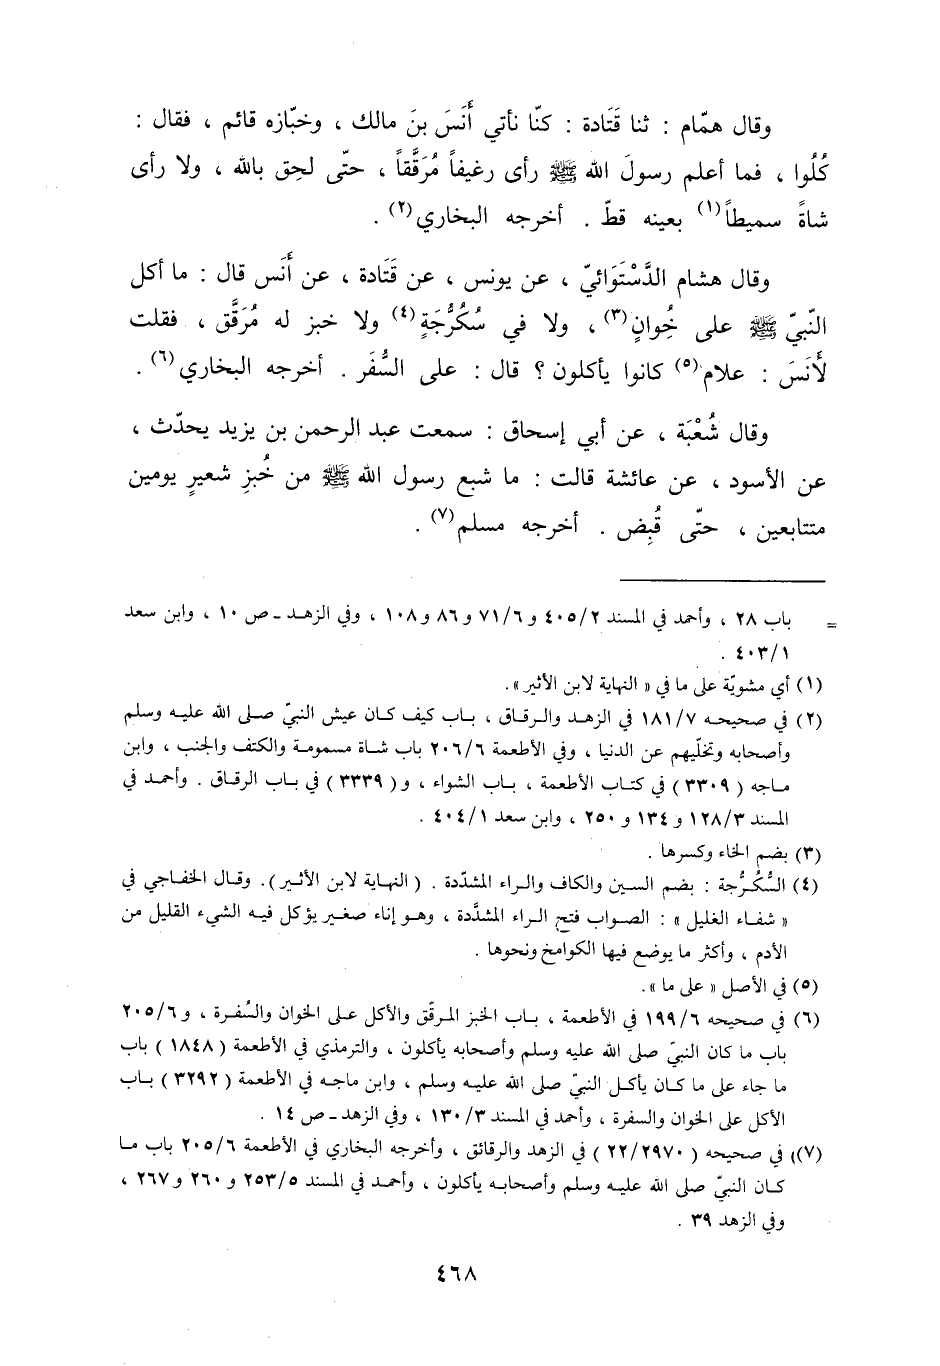 وقال همّام : ثنا قَتَادة : كنّا نأتي أَنَسَ بنَ مالك ، وخبّازه قائم ، فقال :
كُلُوا ، فما أعلم رسولَ الله ﷺ رأى رغيفاً مُرَقَّقاً ، حتّى لحِق بالله ، ولا رأى
شاةً سميطاً(١) بعينه قطّ . أخرجه البخاري(٢) .
وقال هشام الدَّسْتَوَائيّ ، عن يونس ، عن قَتَادة ، عن أَنَس قال : ما أكل
النّبيّ ﷺ على خُوانٍ(٣) ، ولا في سُكُرُّجَةٍ(٤) ولا خبز له مُرَقَّق ، فقلت
لأَنَسَ : علام(٥) كانوا يأكلون ؟ قال : على السُّفَر . أخرجه البخاري(٦) .
وقال شُعْبَة ، عن أبي إسحاق : سمعت عبد الرحمن بن يزيد يحدّث ،
عن الأسود ، عن عائشة قالت : ما شبع رسول الله ﷺ من خُبزِ شعيرٍ يومين
متتابعين ، حتّى قُبِض . أخرجه مسلم(٧) .
= باب ٢٨ ، وأحمد في المسند ٤٠٥/٢ و ٧١/٦ و ٨٦ و ١٠٨ ، وفي الزهد ـ ص ١٠ ، وابن سعد
٤٠٣/١ .
(١) أي مشويّة على ما في « النهاية لابن الأثير ».
(٢) في صحيحه ١٨١/٧ في الزهد والرقاق ، باب كيف كان عيش النبيّ صلى الله عليه وسلم
وأصحابه وتخلّيهم عن الدنيا ، وفي الأطعمة ٢٠٦/٦ باب شاة مسمومة والكتف والجنب ، وابن
ماجه ( ٣٣٠٩ ) في كتاب الأطعمة ، باب الشواء ، و ( ٣٣٣٩ ) في باب الرقاق . وأحمد في
المسند ١٢٨/٣ و ١٣٤ و ٢٥٠ ، وابن سعد ٤٠٤/١ .
(٣) بضم الخاء وكسرها .
(٤) السُّكُرُّجة : بضم السين والكاف والراء المشدّدة . ( النهاية لابن الأثير ). وقال الخفاجي في
« شفاء الغليل » : الصواب فتح الراء المشدَّدة ، وهو إناء صغير يؤكل فيه الشيء القليل من
الأدم ، وأكثر ما يوضع فيها الكوامخ ونحوها .
(٥) في الأصل « على ما ».
(٦) في صحيحه ١٩٩/٦ في الأطعمة ، باب الخبز المرقّق والأكل على الخوان والسُفرة ، و ٢٠٥/٦
باب ما كان النبيّ صلى الله عليه وسلم وأصحابه يأكلون ، والترمذي في الأطعمة ( ١٨٤٨ ) باب
ما جاء على ما كان يأكل النبيّ صلى الله عليه وسلم ، وابن ماجه في الأطعمة ( ٣٢٩٢ ) باب
الأكل على الخوان والسفرة ، وأحمد في المسند ١٣٠/٣ ، وفي الزهد ـ ص ١٤ .
(٧)) في صحيحه ( ٢٢/٢٩٧٠ ) في الزهد والرقائق ، وأخرجه البخاري في الأطعمة ٢٠٥/٦ باب ما
كان النبيّ صلى الله عليه وسلم وأصحابه يأكلون ، وأحمد في المسند ٢٥٣/٥ و ٢٦٠ و ٢٦٧ ،
وفي الزهد ٣٩ .
٤٦٨